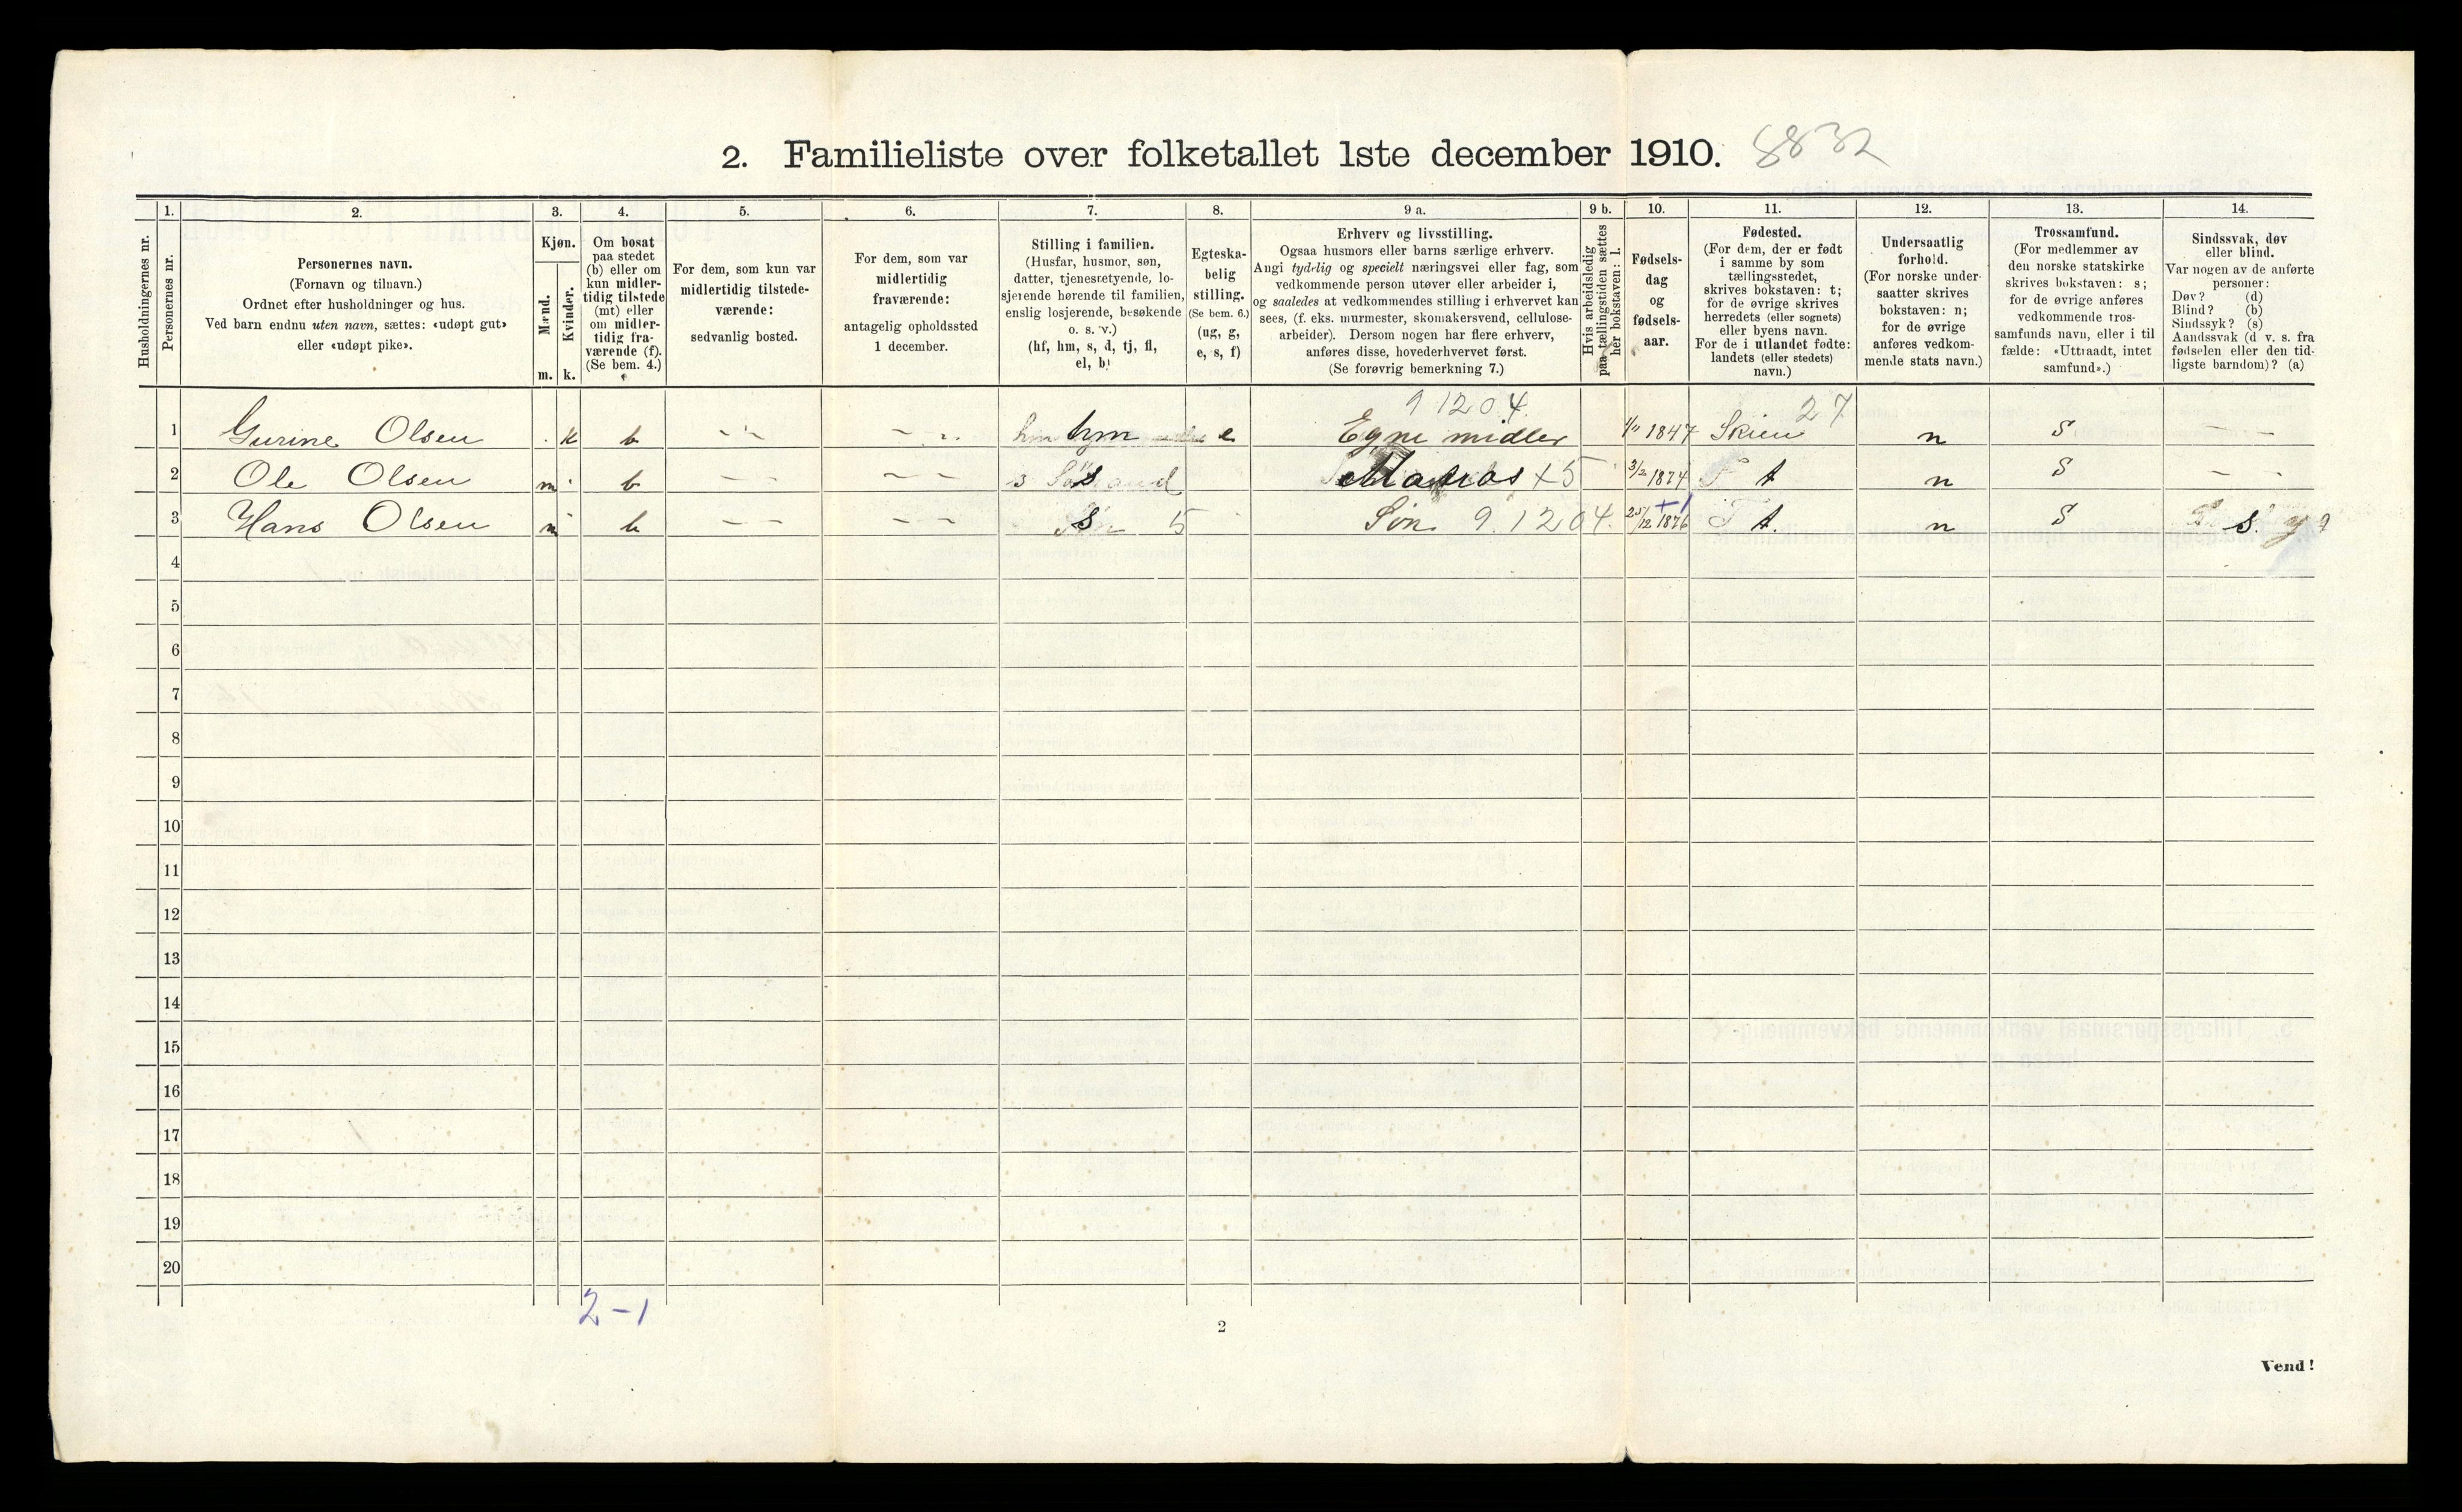 2. Familieliste over folketallet 1ste december 1910. 8832
1. 2. 3. 4. 5. 6. 7. 8. 9 a. 9 b. 10. 11. 12. 13. 14.
Husholdningernes nr.
Personernes nr.
Personernes navn.
(Fornavn og tilnavn.)
Ordnet efter husholdninger og hus.
Ved barn endnu uten navn, sættes: «udøpt gut»
eller «udøpt pike».
Kjøn.
Mænd.
Kvinder.
m. k.
Om bosat
paa stedet
(b) eller om
kun midler-
tidig tilstede
(mt) eller
om midler-
tidig fra-
værende (f).
(Se bem. 4.)
For dem, som kun var
midlertidig tilstede-
værende:
sedvanlig bosted.
For dem, som var
midlertidig
fraværende:
antagelig opholdssted
1 december.
Stilling i familien.
(Husfar, husmor, søn,
datter, tjenestetyende, lo-
sjerende hørende til familien,
enslig losjerende, besøkende
o. s. v.)
(hf, hm, s, d, tj, fl,
el, b)
Egteska-
belig
stilling.
(Se bem. 6.)
(ug, g,
e, s, f)
Erhverv og livsstilling.
Ogsaa husmors eller barns særlige erhverv.
Angi tydelig og specielt næringsvei eller fag, som
vedkommende person utøver eller arbeider i,
og saaledes at vedkommendes stilling i erhvervet kan
sees, (f. eks. murmester, skomakersvend, cellulose-
arbeider). Dersom nogen har flere erhverv,
anføres disse, hovederhvervet først.
(Se forøvrig bemerkning 7.)
Hvis arbeidsledig
paa tællingstiden sættes
her bokstaven: l.
Fødsels-
dag
og
fødsels-
aar.
Fødested.
(For dem, der er født
i samme by som
tællingsstedet,
skrives bokstaven: t;
for de øvrige skrives
herredets (eller sognets)
eller byens navn.
For de i utlandet fødte:
landets (eller stedets)
navn.)
Undersaatlig
forhold.
(For norske under-
saatter skrives
bokstaven: n;
for de øvrige
anføres vedkom-
mende stats navn.)
Trossamfund.
(For medlemmer av
den norske statskirke
skrives bokstaven: s;
for de øvrige anføres
vedkommende tros-
samfunds navn, eller i til
fælde: «Uttraadt, intet
samfund».)
Sindssvak, døv
eller blind.
Var nogen av de anførte
personer:
Døv? (d)
Blind? (b)
Sindssyk? (s)
Aandssvak (d v. s. fra
fødselen eller den tid-
ligste barndom)? (a)
9 1204. 27
1 Gurine Olsen k b hm e Egne midler 1847 Skien n S
2 Ole Olsen m b s Matros x5 3/2 1874 t n S
3 Hans Olsen m b s 5 Søn 9.1204. 25/12 1876 t. n S s.
4
5
6
7
8
9
10
11
12
13
14
15
16
17
18
19
20
2-1
2
Vend!